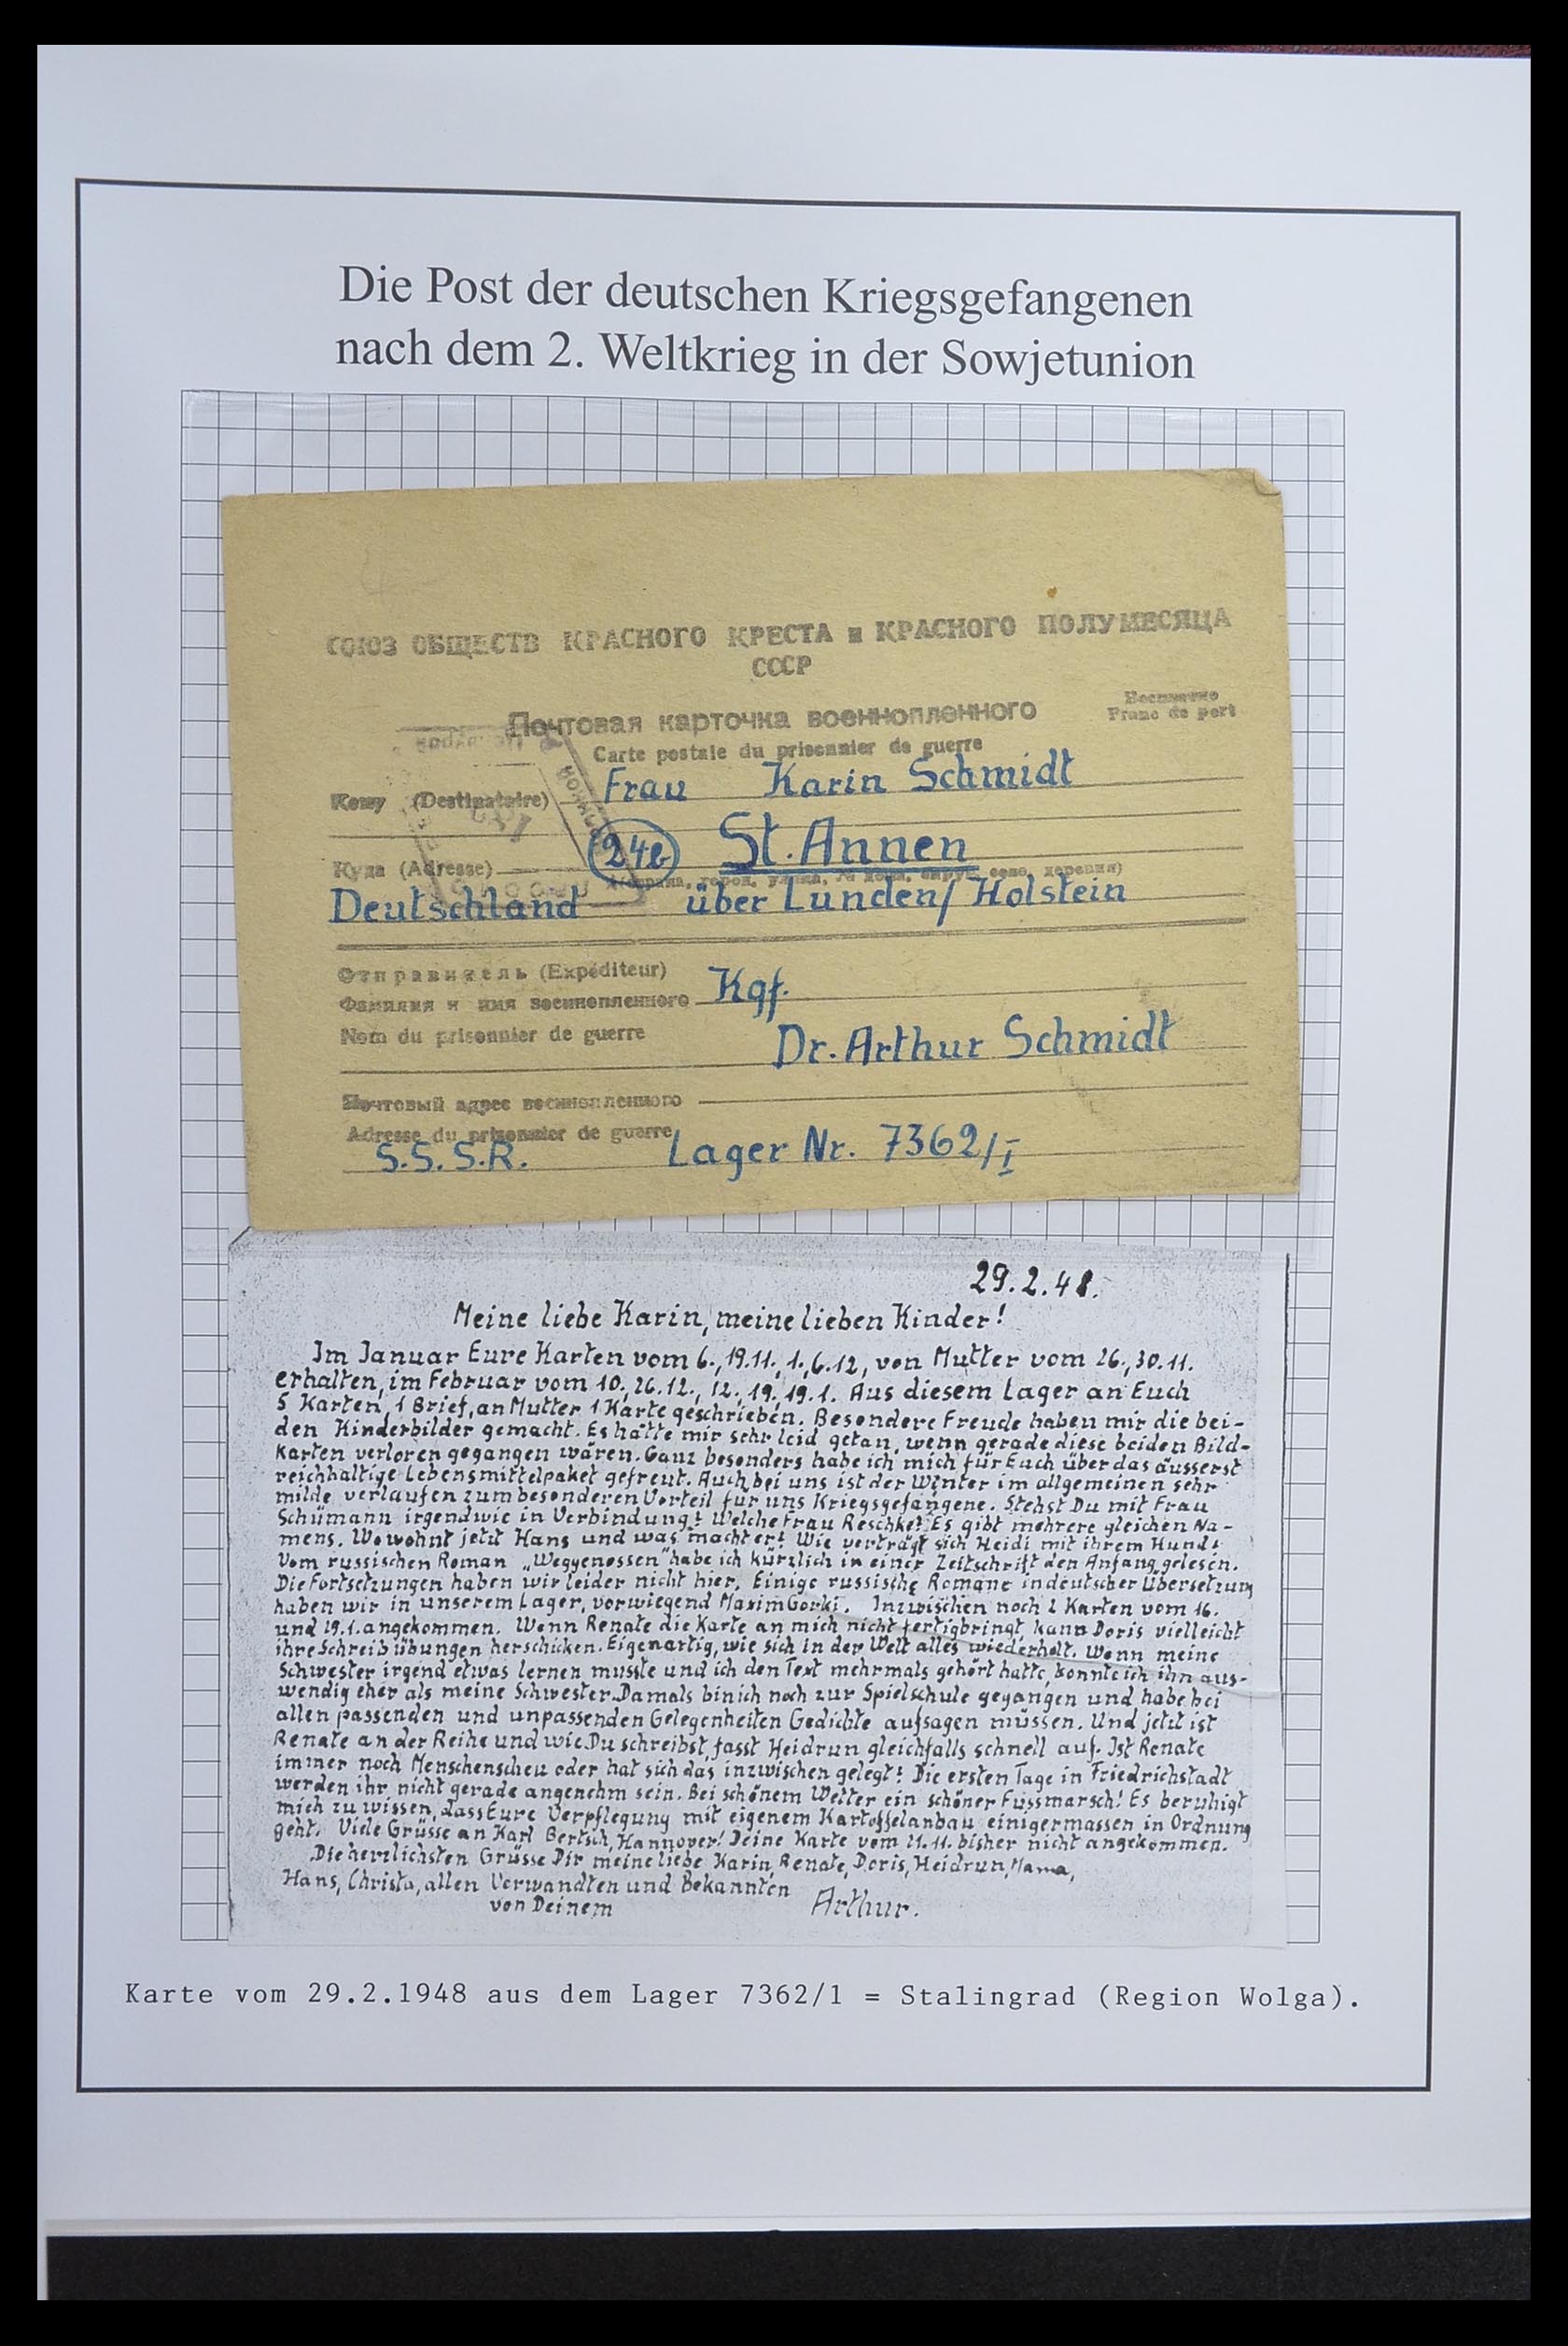 Die Post der deutschen Kriegsgefangenen
nach dem 2. Weltkrieg in der Sowjetunion
СОЮЗ ОБЩЕСТВ КРАСНОГО КРЕСТА и КРАСНОГО ПОЛУМЕСЯЦА
СССР
Почтовая карточка военнопленного
Бесплатно
Franc de port
Carte postale du prisonnier de guerre
Кому (Destinataire) Frau Karin Schmidt
Куда (Adresse) 24b St. Annen
(страна, город, улица, № дома, округ, село, деревня)
Deutschland über Lunden/Holstein
Отправитель (Expéditeur)
Фамилия и имя военнопленного Kgf.
Nom du prisonnier de guerre
Dr. Arthur Schmidt
Почтовый адрес военнопленного
Adresse du prisonnier de guerre
S.S.S.R. Lager Nr. 7362/I
29.2.48.
Meine liebe Karin, meine lieben Kinder!
Im Januar Eure Karten vom 6., 19.11., 1., 6.12, von Mutter vom 26., 30.11.
erhalten, im Februar vom 10., 26.12., 12., 19., 19.1. Aus diesem Lager an Euch
5 Karten, 1 Brief, an Mutter 1 Karte geschrieben. Besondere Freude haben mir die bei-
den Kinderbilder gemacht. Es hätte mir sehr leid getan, wenn gerade diese beiden Bild-
karten verloren gegangen wären. Ganz besonders habe ich mich für Euch über das äusserst
reichhaltige Lebensmittelpaket gefreut. Auch bei uns ist der Winter im allgemeinen sehr
milde verlaufen zum besonderen Vorteil für uns Kriegsgefangene. Stehst Du mit Frau
Schümann irgendwie in Verbindung? Welche Frau Reschke? Es gibt mehrere gleichen Na-
mens. Wo wohnt jetzt Hans und was macht er? Wie verträgt sich Heidi mit ihrem Hund?
Vom russischen Roman „Weggenossen" habe ich kürzlich in einer Zeitschrift den Anfang gelesen.
Die Fortsetzungen haben wir leider nicht hier. Einige russische Romane in deutscher Übersetzung
haben wir in unserem Lager, vorwiegend Maxim Gorki. Inzwischen noch 2 Karten vom 16.
und 19.1. angekommen. Wenn Renate die Karte an mich nicht fertigbringt, kann Doris vielleicht
ihre Schreibübungen herschicken. Eigenartig, wie sich in der Welt alles wiederholt. Wenn meine
Schwester irgend etwas lernen musste und ich den Text mehrmals gehört hatte, konnte ich ihn aus-
wendig eher als meine Schwester. Damals bin ich noch zur Spielschule gegangen und habe bei
allen passenden und unpassenden Gelegenheiten Gedichte aufsagen müssen. Und jetzt ist
Renate an der Reihe und wie Du schreibst, fasst Heidrun gleichfalls schnell auf. Ist Renate
immer noch Menschenscheu oder hat sich das inzwischen gelegt? Die ersten Tage in Friedrichstadt
werden ihr nicht gerade angenehm sein. Bei schönem Wetter ein schöner Fussmarsch! Es beruhigt
mich zu wissen, dass Eure Verpflegung mit eigenem Kartoffelanbau einigermassen in Ordnung
geht. Viele Grüsse an Karl Bertsch, Hannover! Deine Karte vom 21.11. bisher nicht angekommen.
Die herzlichsten Grüsse Dir meine liebe Karin, Renate, Doris, Heidrun, Mama,
Hans, Christa, allen Verwandten und Bekannten
von Deinem Arthur.
Karte vom 29.2.1948 aus dem Lager 7362/1 = Stalingrad (Region Wolga).